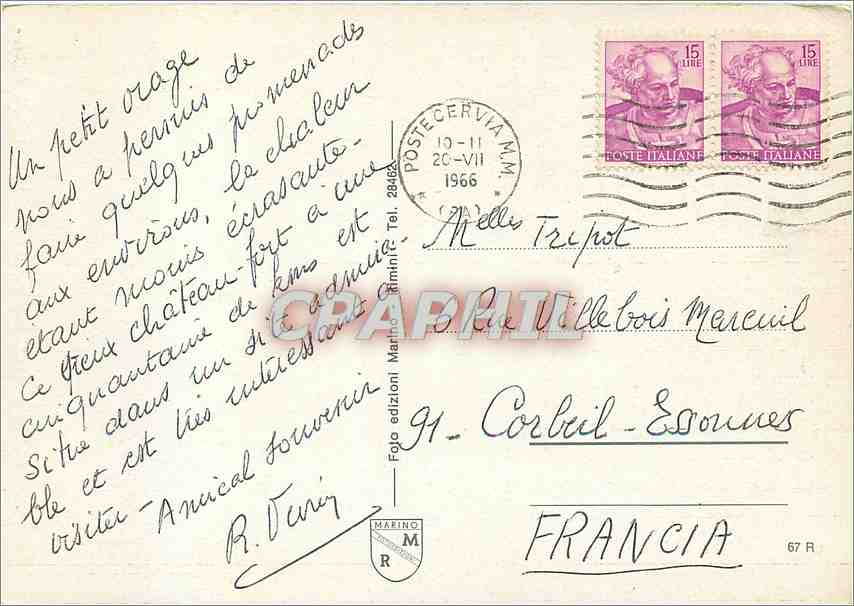 Un petit orage
nous a permis de
faire quelques promenades
aux environs, la chaleur
étant moins écrasante.
Ce vieux château-fort à une
cinquantaine de kms est
situé dans un site admira-
ble et est très intéressant à
visiter - Amical souvenir
R.
MARINO
M
R
Foto edizioni Marino - Rimini - Tel. 28462
15
LIRE
POSTE ITALIANE
15
LIRE
POSTE ITALIANE
POSTE CERVIA M.M.
10-11
20-VII
1966
Melles Tripot
6 Rue Villebois Mareuil
91- Corbeil-Essonnes
FRANCIA
67 R
CPAPHIL